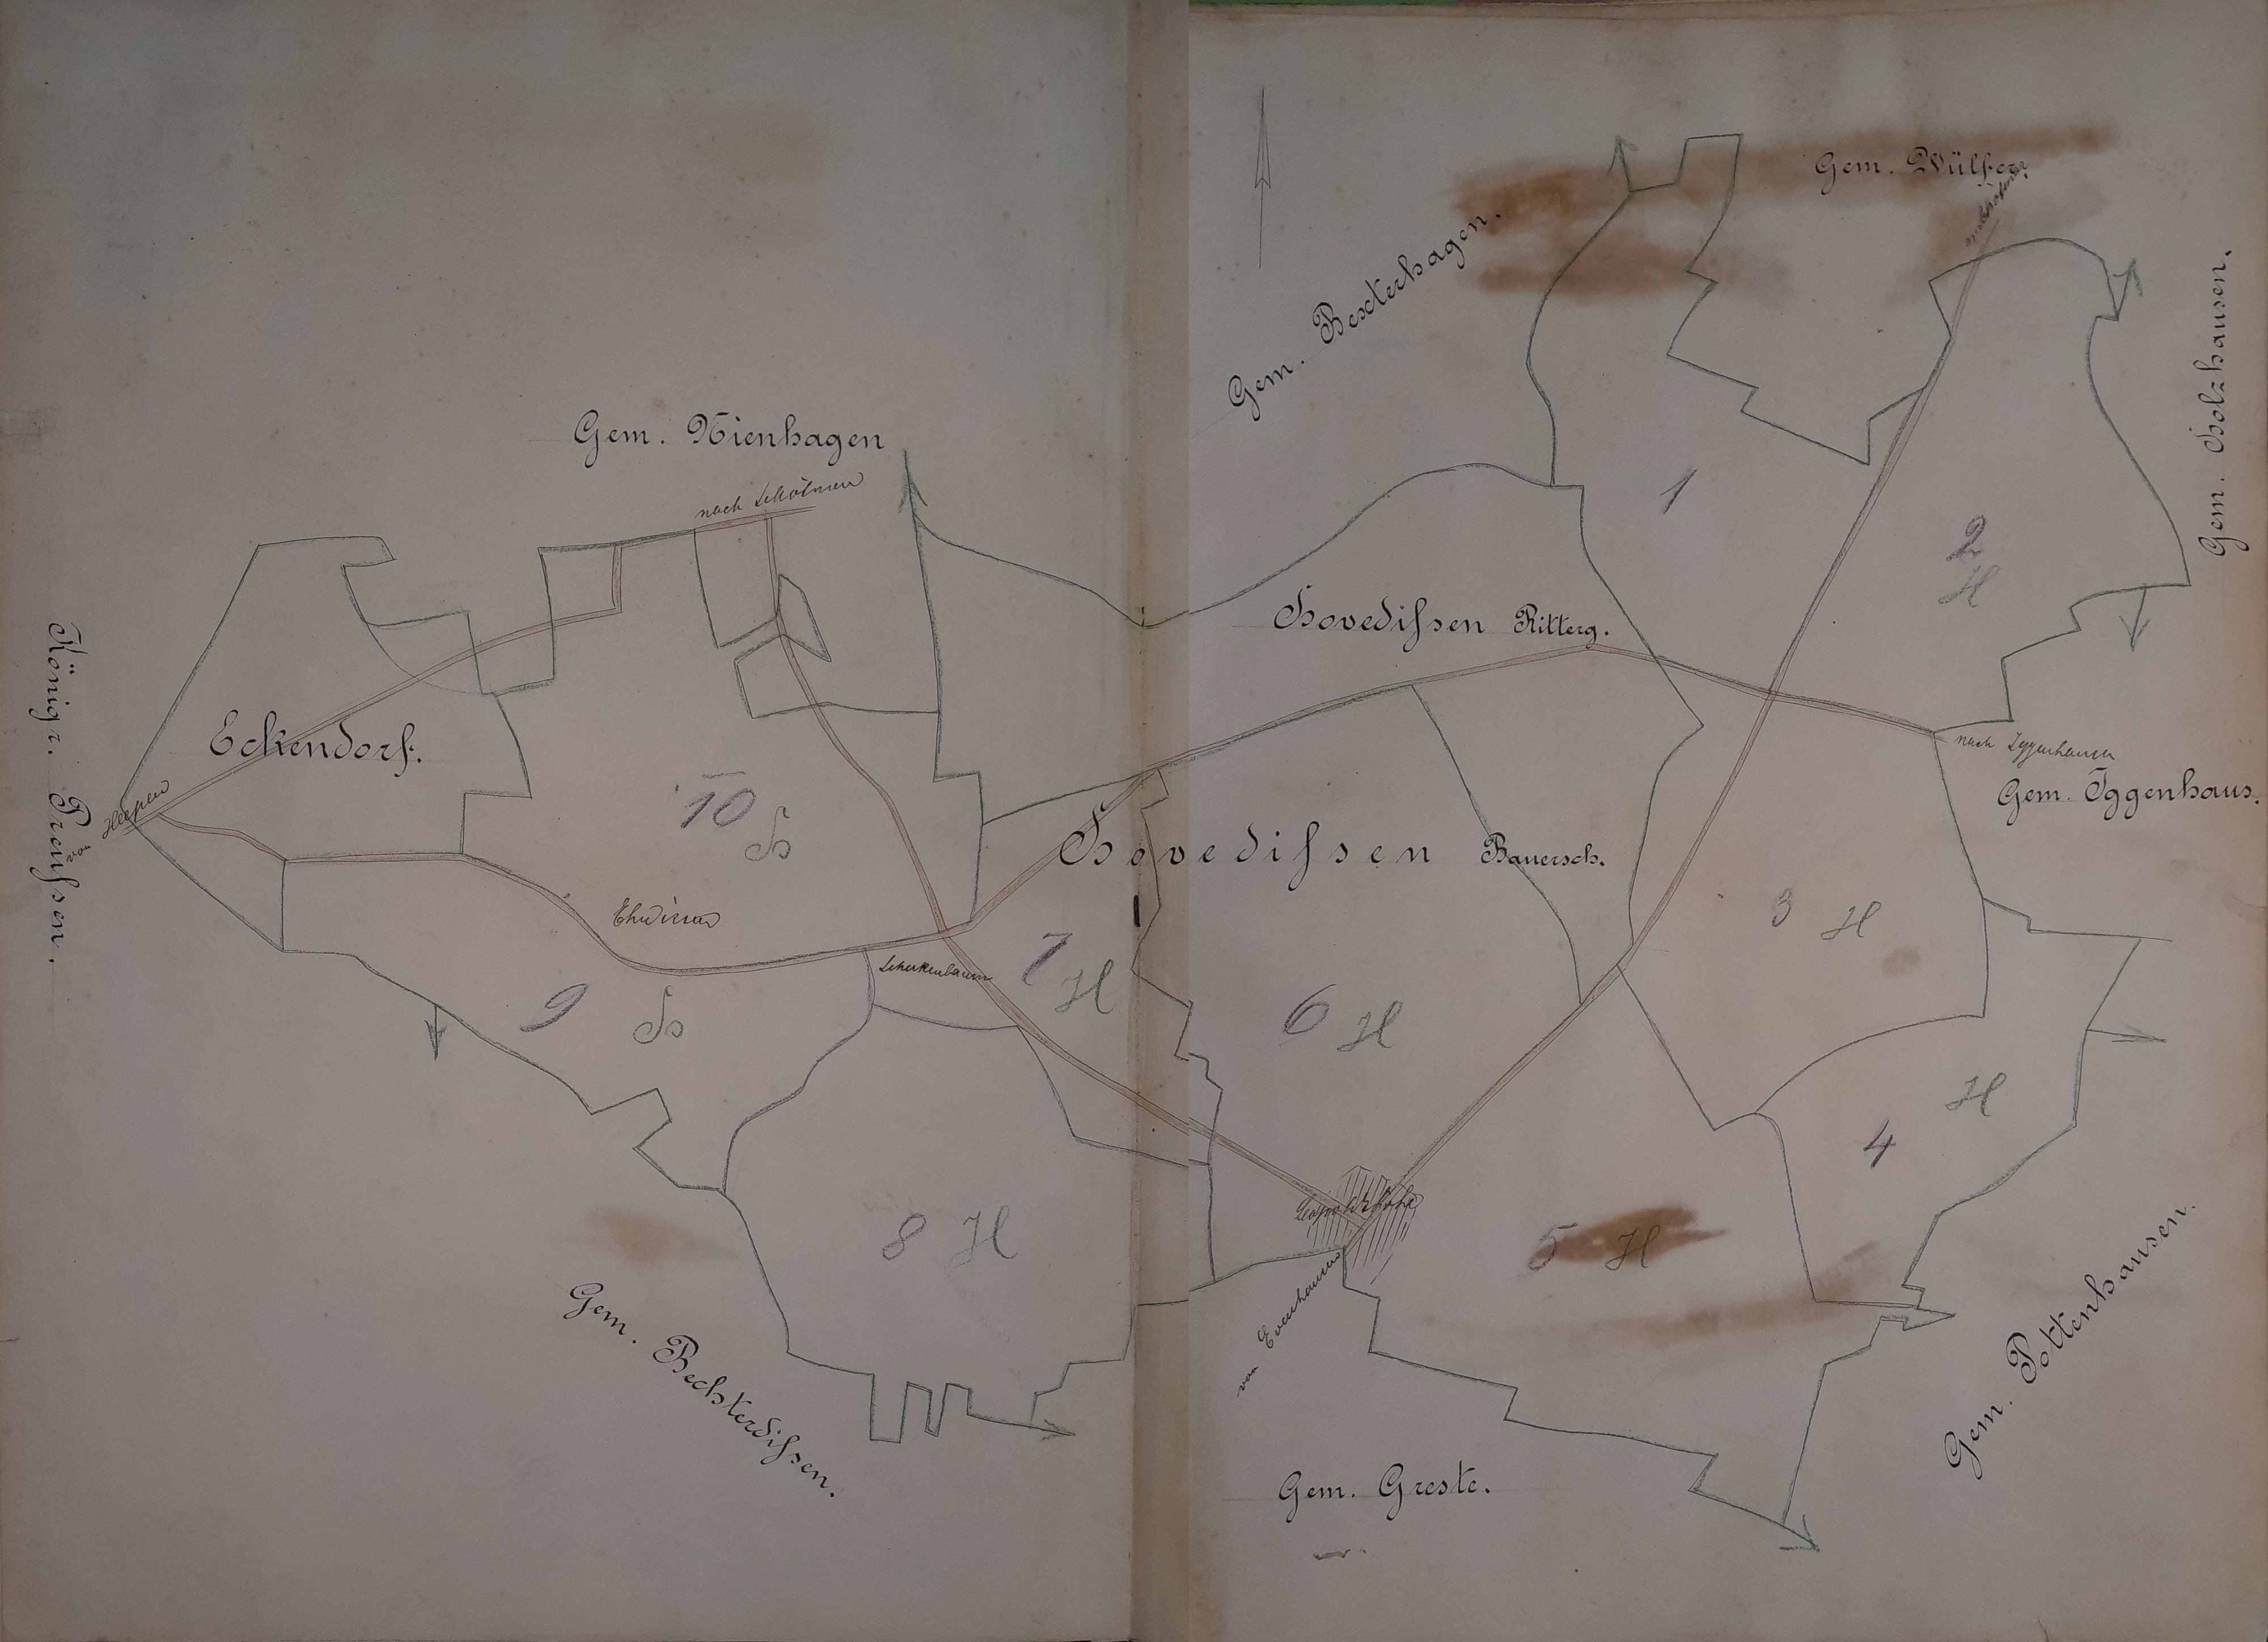 Gem. Wülfer.
Gem. Bexterhagen.
Gem. Holzhausen.
Gem. Nienhagen
nach Schötmar
1
2
H
Hovedissen Ritterg.
Königr. Preussen.
Eckendorf.
von Heepen
nach Iggenhausen
Gem. Iggenhaus.
10
H
Hovedissen Bauersch.
3 H
Schuckenbaum
7 H
9 H
6 H
H
4
Leopoldshöhe
8 H
5 H
von Evenhausen
Gem. Bechterdissen.
Gem. Pottenhausen.
Gem. Greste.